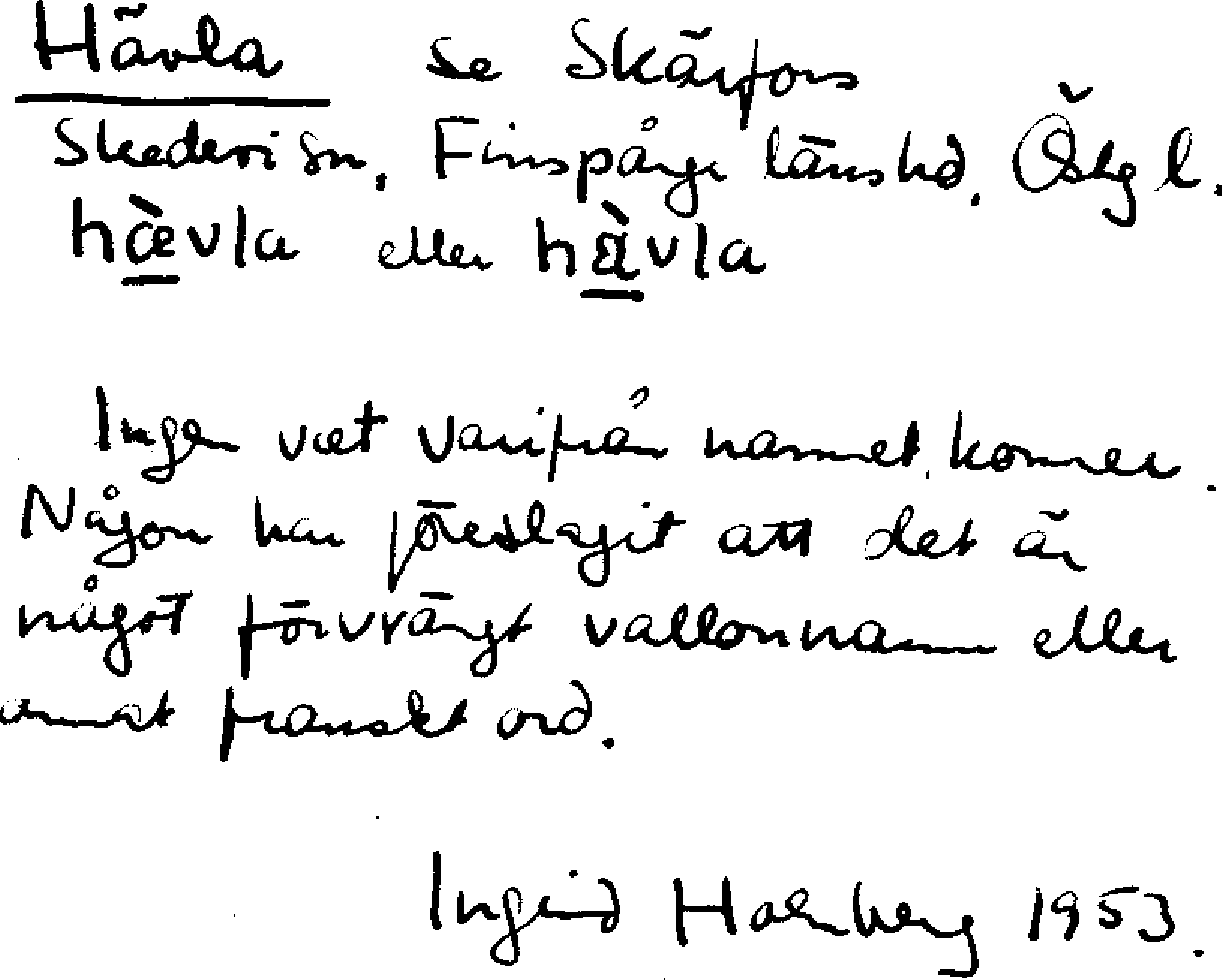 Hävla se Skärfors
Skedevi sn, Finspånga länshd. Östg l.
hæ̀vla eller hà̈vla
Ingen vet varifrån namnet kommer.
Någon har föreslagit att det är
något förvrängt vallonnamn eller
annat franskt ord.
Ingrid Holmberg 1953.